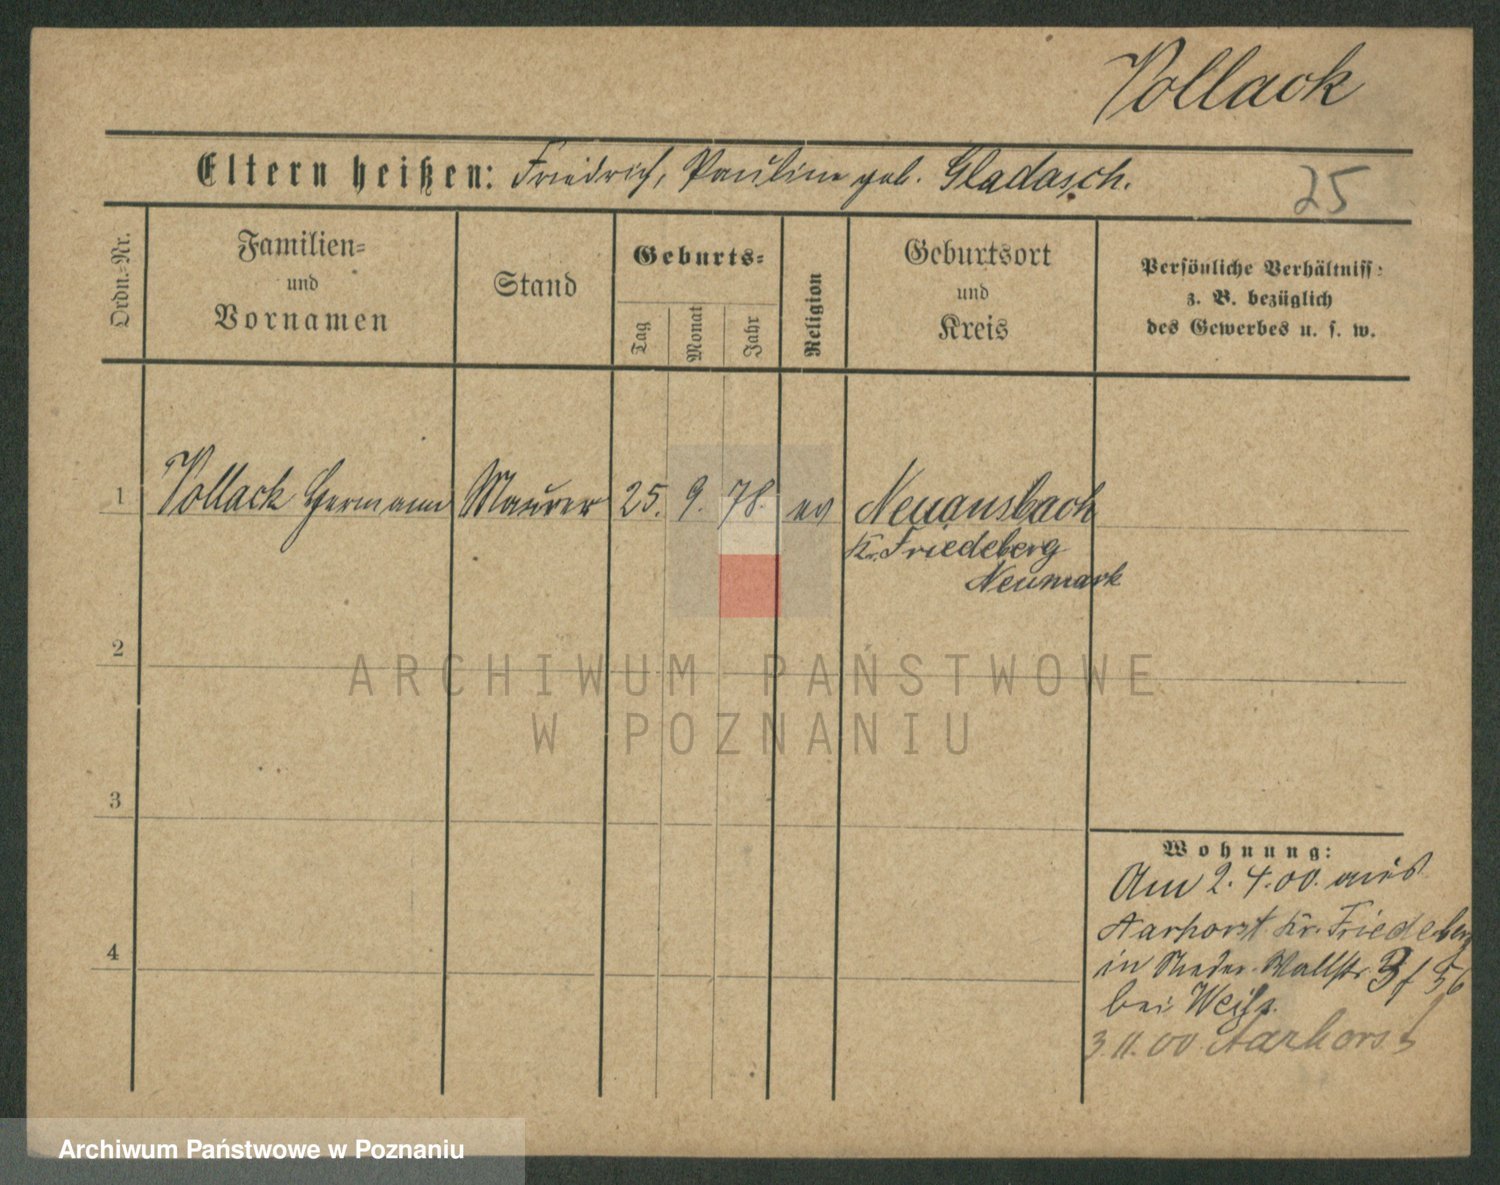 Vollack
Eltern heißen: Friedrich, Pauline geb. Gladasch.
25
Ordn.-Nr.
Familien-
und
Vornamen
Stand
Geburts-
Tag
Monat
Jahr
Religion
Geburtsort
und
Kreis
Persönliche Verhältnisse
z. B. bezüglich
des Gewerbes u. s. w.
1 Vollack Hermann Maurer 25. 9. 78. ev Neuansbach
Kr. Friedeberg
Neumark
2
ARCHIWUM PAŃSTWOWE
W POZNANIU
3
4
Wohnung:
Am 2.4.00. aus
Aarhorst Kr. Friedeberg
in Wallstr. 3
bei Weiß.
3.11.00 Aarhorst
Archiwum Państwowe w Poznaniu